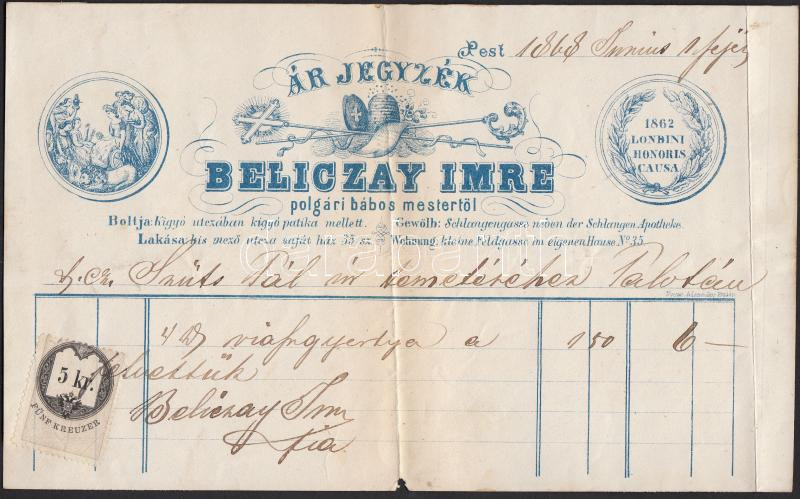 Pest 1868 Junius
ÁR JEGYZÉK
1862
LONDINI
HONORIS
CAUSA
BELICZAY IMRE
polgári bábos mestertöl
Boltja: Kigyó utczában kigyó patika mellett. Gewölb: Schlangengasse neben der Schlangen Apotheke.
Lakása: kis mezö utcza saját ház 35 sz. Wohnung: kleine Feldgasse im eigenen Hause No 35.
Szüts Pál úr temetéséhez
4 viaszgyertya a 150 6 —
felvettük
5 kr.
FÜNF KREUZER
Beliczay Im
fia